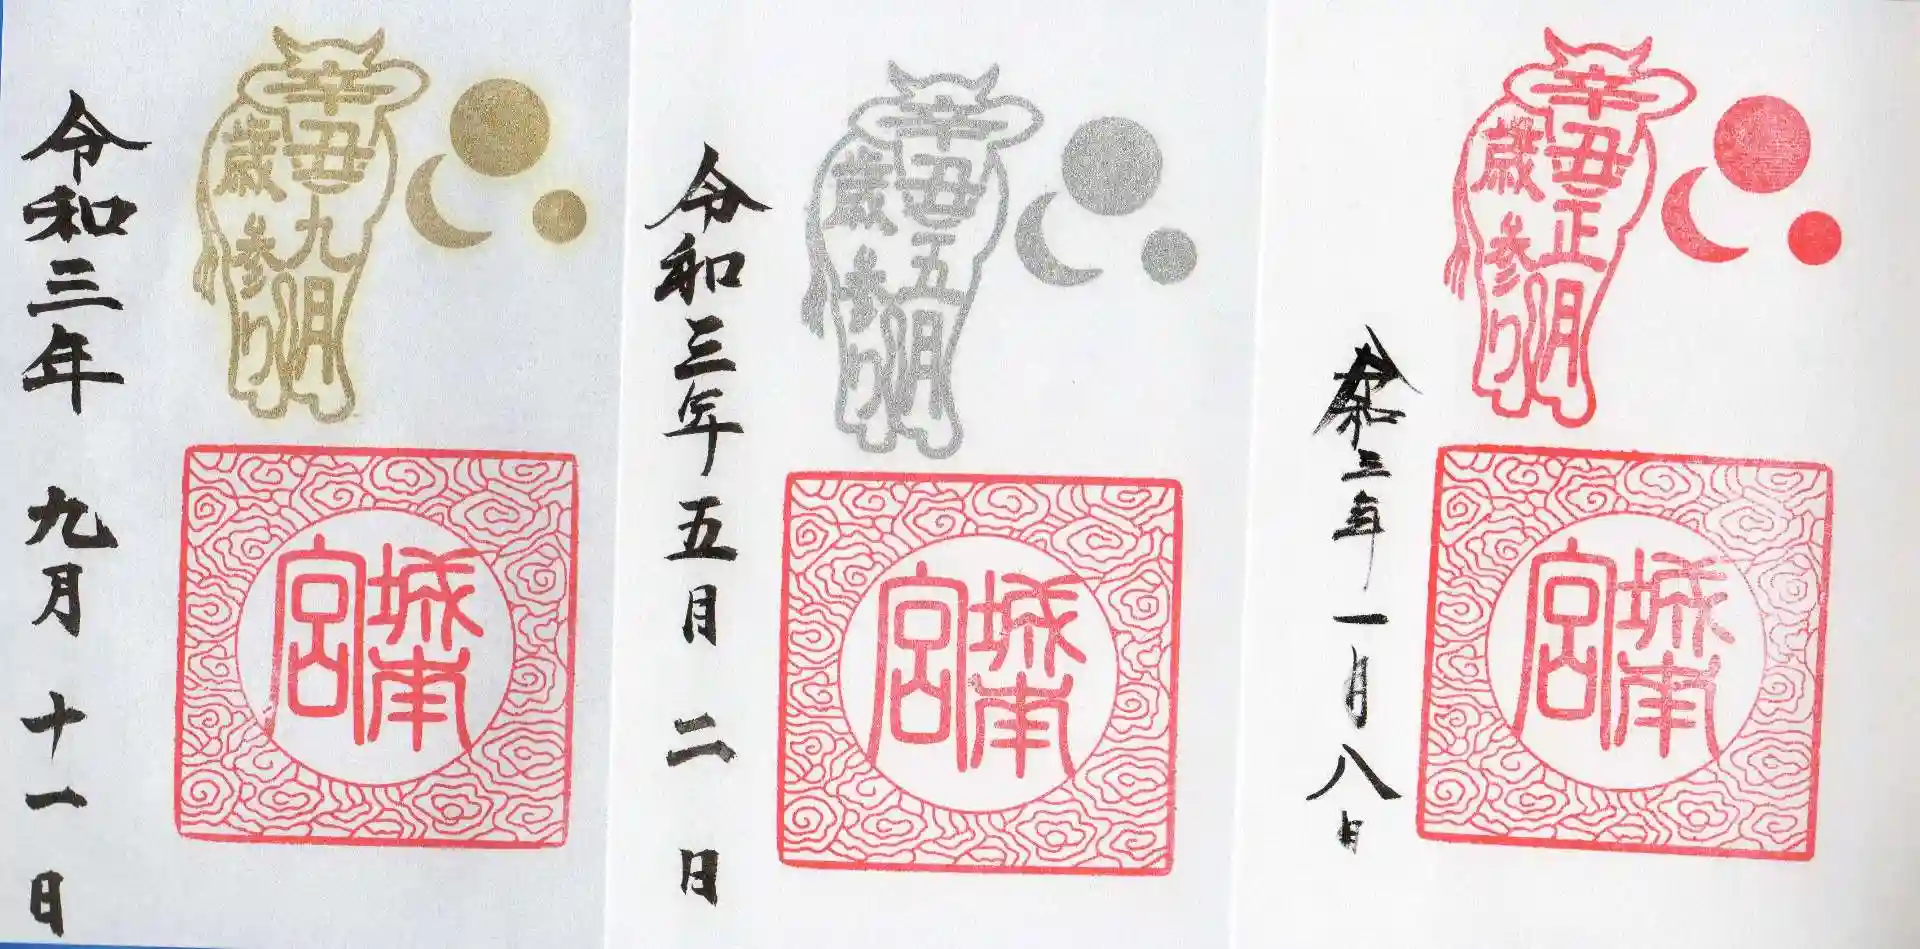 辛丑正月
歳参り
城南
宮
令和三年一月八日
辛丑五月
歳参り
城南
宮
令和三年五月二日
辛丑九月
歳参り
城南
宮
令和三年九月十一日